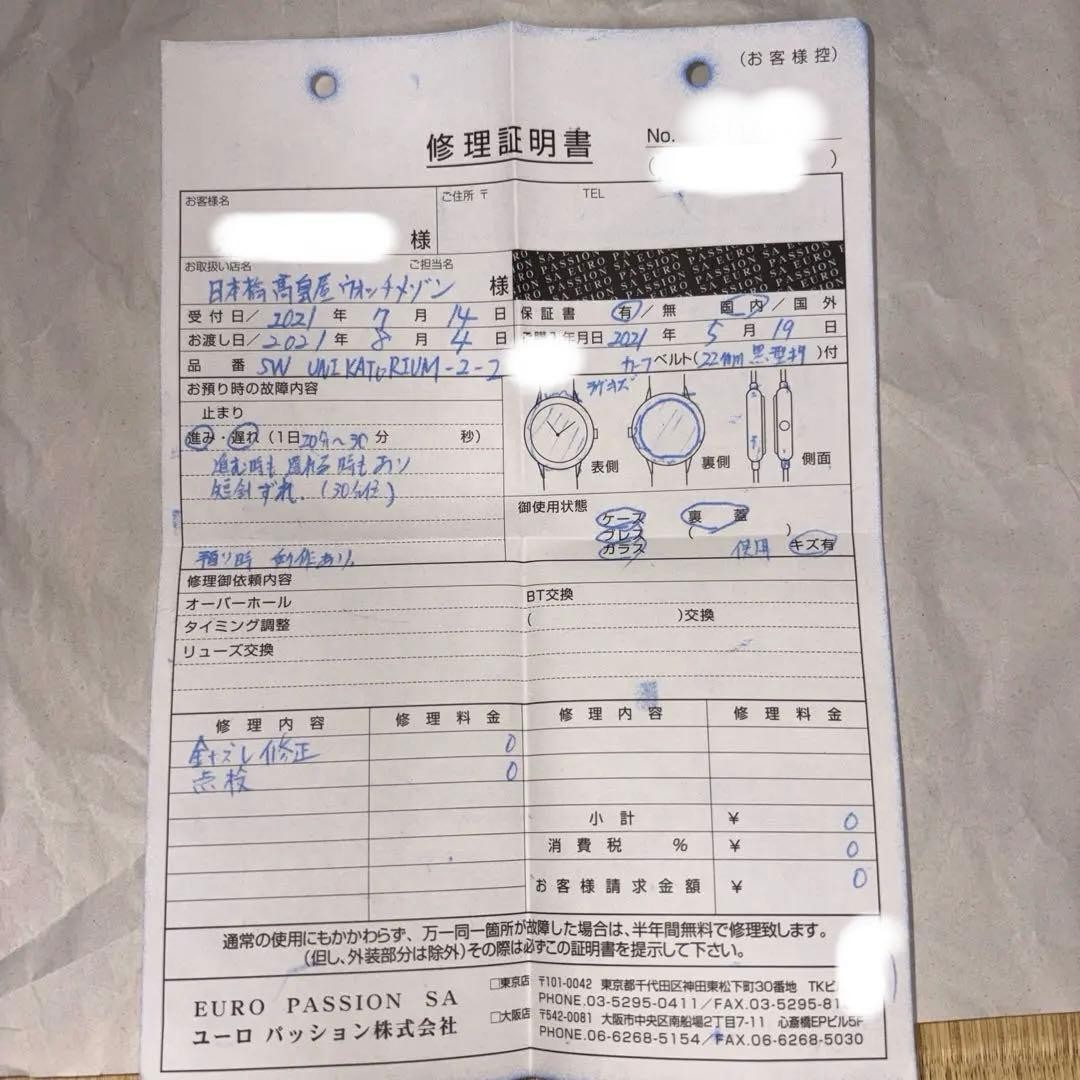 (お客様控)
修理証明書
No.
( )
お客様名
様
ご住所 〒
TEL
お取扱い店名
ご担当名
日本橋高島屋ウォッチメゾン 様
受付日/2021年 7月 14日
お渡し日/2021年 8月 4日
品番 SW UNIKATORIUM-2-2
保証書 有/無 国内/国外
年月日 2021年 5月 19日
ベルト(22 黒型押)付
お預り時の故障内容
止まり
進み・遅れ(1日20分〜30分 秒)
進む時も遅れる時もあり
短針ずれ.(30分位)
預り時 動作あり.
表側
裏側
側面
御使用状態
ケース
ブレス
ガラス
裏蓋
( )
使用 キズ有
修理御依頼内容
オーバーホール
タイミング調整
リューズ交換
BT交換
( )交換
修理内容 修理料金 修理内容 修理料金
針ズレ修正 0
点検 0
小計 ¥ 0
消費税 % ¥ 0
お客様請求金額 ¥ 0
通常の使用にもかかわらず、万一同一箇所が故障した場合は、半年間無料で修理致します。
(但し、外装部分は除外)その際は必ずこの証明書を提示して下さい。
EURO PASSION SA
ユーロ パッション株式会社
□東京店 〒101-0042 東京都千代田区神田東松下町30番地 TKビ
PHONE.03-5295-0411/FAX.03-5295-81
□大阪店 〒542-0081 大阪市中央区南船場2丁目7-11 心斎橋EPビル5F
PHONE.06-6268-5154/FAX.06-6268-5030